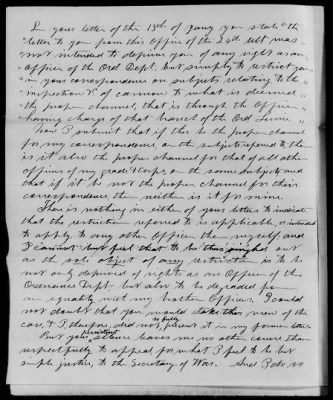 In your letter of the 18th of Jany. you state "the
"letter to you from this Office of the 24th ult. was
"not intended to deprive you of any right as an
"Officer of the Ord. Dept. but simply to restrict you
"in your correspondence on subjects relating to the
"inspection &c of cannon to what is deemed
"the proper channel, that is through the Officer
"having charge of that branch of the Ord. Service"
Now I submit that if this be the proper channel
for my correspondence, on the subjects referred to then
is it also the proper channel for that of all other
officers of my grade & Corps, on the same subjects and
that if it be not the proper channel for their
correspondence then neither is it for mine.
There is nothing in either of your letters to indicate
that the restriction referred to is applicable, or intended
to apply to any other Officer than myself and
I cannot but feel that to be thus singled out
as the sole object of any restriction is to be
not only deprived of rights as an Officer of the
Ordnance Dept. but also to be degraded from
an equality with my brother Officers. I could
not doubt that you would take this view of the
case, & I, therefore, did not so fully present it in my former letter
But your persistent silence leaves me no other course than
respectfully to appeal for what I feel to be but
simple justice, to the Secretary of War. And I do so